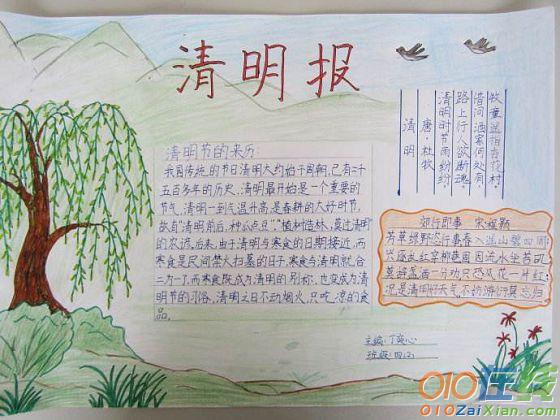 清明报
清明节的来历:
我国传统的节日清明大约始于周朝,已有二十
五百多年的历史,清明最开始是一个重要的
节气,清明一到气温升高,是春耕的大好时节,
故有"清明前后,种瓜点豆""植树造林,莫过清明"
的农谚。后来,由于清明与寒食的日期接近,而
寒食是民间禁火扫墓的日子,寒食与清明就合
二为一了,而寒食既成为清明的别称,也变成为清
明节的习俗,清明之日不动烟火,只吃凉的食
品。
清明
唐·杜牧
清明时节雨纷纷
路上行人欲断魂
借问酒家何处有
牧童遥指杏花村
郊行即事 宋程颢
芳草绿野恣行事春入遥山碧四周
兴逐乱红穿柳巷困因流水坐苔矶
莫辞盏酒一分劝只恐风花一片红
况是清明好天气不妨游衍莫忘归
主编:丁奕心
班级:四(2)
010在线
010ZaiXian.com